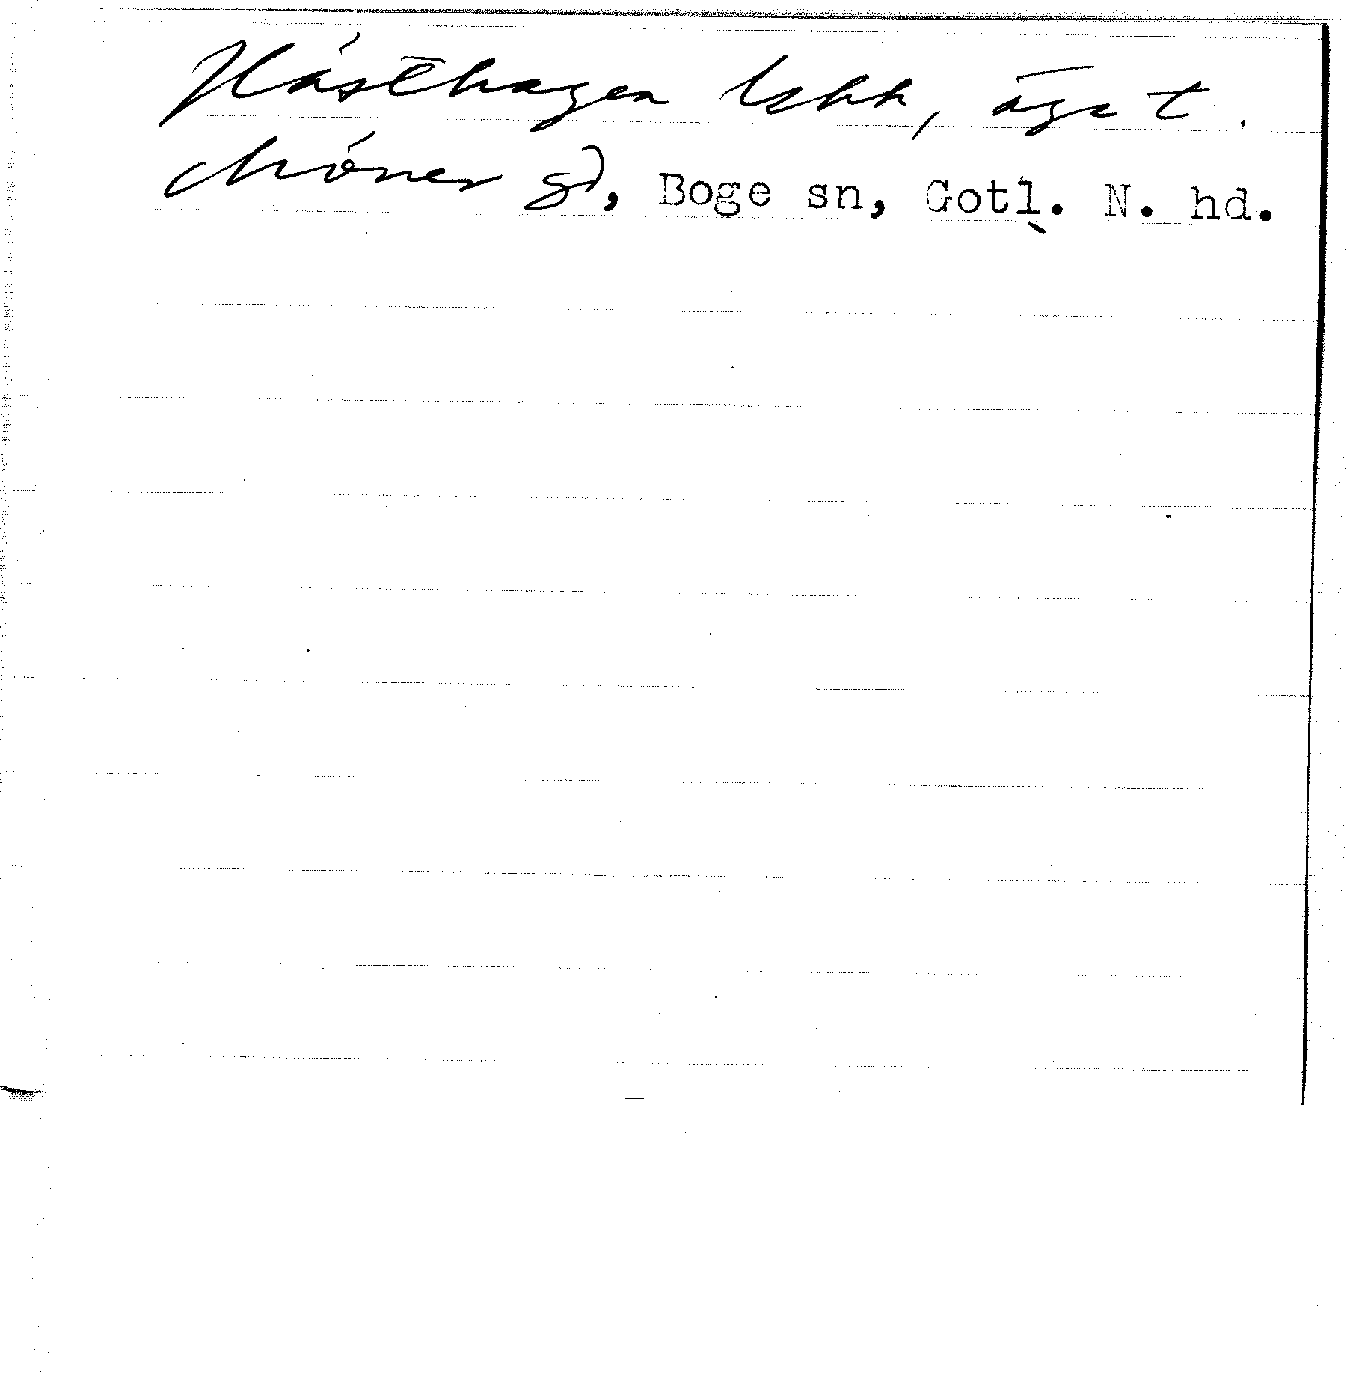 Hästhagen lshk, äga t.
Möner gd, Boge sn, Gotl. N. hd.